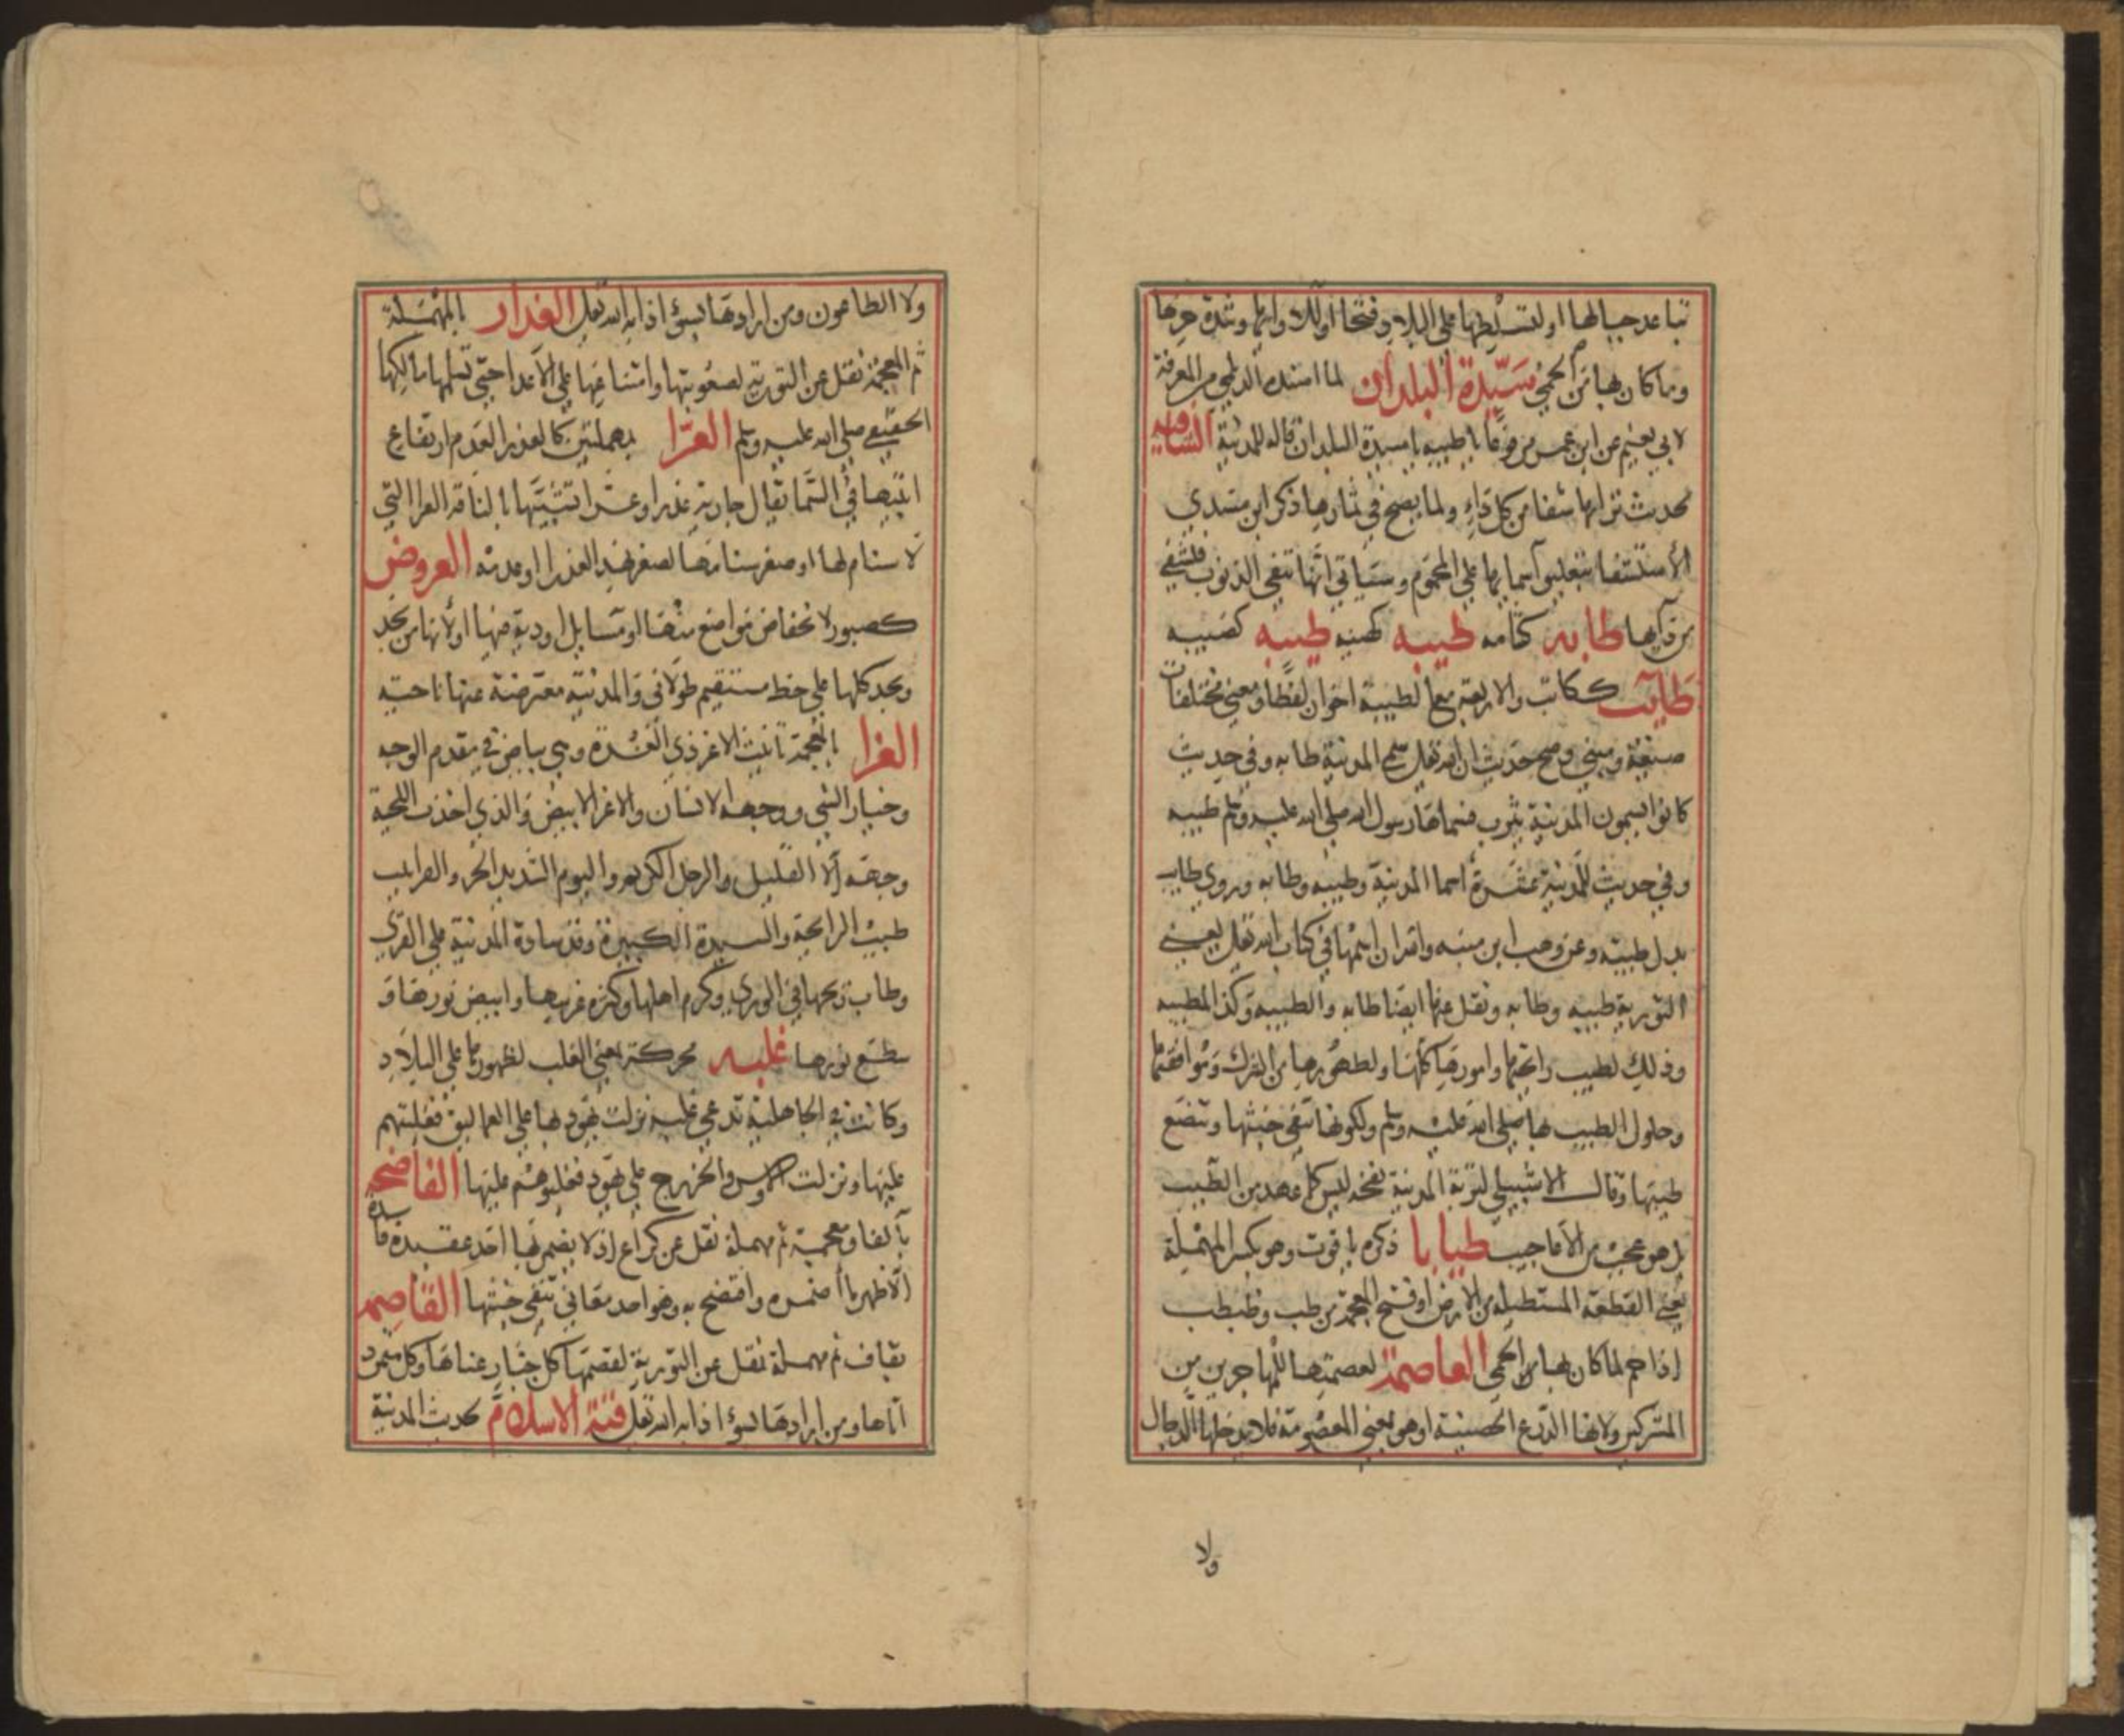 تباعد جبالها او لتسلطها على البلاد وفتحها اولا ولأوائها وشدة حرها
وما كان بها من الحمى سيدة البلدان لما اسنده الديلمي من المعرفة
لابي نعيم عن ابن عمر مرفوعا يا طيبه يا سيدة البلدان قاله للمدينة الشافيه
لحديث ترابها شفا من كل داء ولما يصح في ثمارها ذكر ابن مسدي
الاستشفا بتعليق اسمايها على المحموم وسياتي انها تنفي الذنوب فتشفي
من دايها طابه كشامه طيبه كهيبه طيبه كصيبه
طايب ككاتب والاربعة مع المطيبة اخوان لفظا ومعنى مختلفات
صيغة ومبنى وصح حديث ان الله تعالى سمى المدينة طابه وفي حديث
كانوا يسمون المدينة يثرب فسماها رسول الله صلى الله عليه وسلم طيبه
وفي حديث للمدينة عشرة اسما المدينة وطيبه وطابه وروي طايب
بدل طيبة وعن وهب ابن منبه والله ان اسمها في كتاب الله تعالى يعني
التورية طيبه وطابه ونقل عنها ايضا طابه والطيبه وكذا المطيبه
وذلك لطيب رائحتها وامورها كلها ولطهورها من الشرك وموافقتها
وحلول الطيب بها صلى الله عليه وسلم ولكونها تنفي خبثها وينصع
طيبها وقال الاشبيلي لتربة المدينة نفحة ليس كما عهد من الطيب
بل هو عجب من الاعاجيب طبابا ذكره ياقوت وهو بكسر المهملة
يعني القطعة المستطيلة من الارض او فتح المعجمة من ظب وظبظب
اذا حم لما كان بها من الحمى العاصمة لعصمتها للمهاجرين من
المشركين ولانها الدرع الحصينة او هي بمعنى المعصومة فلا يدخلها الدجال
ولا
ولا الطاعون ومن ارادها بسوء اذابه الله تعالى الغدار بالمهملة
ثم المعجمة نقل عن التورية لصعوبتها وامتناعها على الاعدا حتى تسلمها مالكها
الحقيقي صلى الله عليه وسلم العرا بمهملتين كالعذرا لعدم ارتفاع
ابنيتها في السما يقال جارية عذرا وعرا تشبيها بالناقة العرا التي
لا سنام لها او صغر سنامها لصغر نهد العذرا او عدمه العروض
كصبور لانخفاض مواضع منها او مسايل اودية فيها او لانها من نجد
ونجد كلها على خط مستقيم طولاني والمدينة معترضة عنها ناحيته
الغرا بالمعجمة تانيث الاغر ذي الغرة وهي بياض في مقدم الوجه
وخيار الشي ووجه الانسان والاغر الابيض والذي اخذت اللحية
وجهه الا القليل والرجل الكريم واليوم الشديد الحر والغرا نبت
طيب الرائحة والسيدة الكبيرة وقد سادة المدينة على القرى
وطاب ريحها في الورى وكرم اهلها وكثره غرسها وابيض نورها و
سطع نورها غلبه محركة بمعنى الغلب لظهورها على البلاد
وكانت في الجاهلية تدعى غلبه نزلت يهود بها على العماليق فغلبتهم
عليها ونزلت الاوس والخزرج على يهود فغلبوهم عليها الفاضحه
بالفا ومعجمة ثم مهملة نقل عن كراع اذ لا يضمر بها احد عقيدة فاسدة
الا ظهر ما اضمره وافتضح به وهو احد معاني تنفي خبثها القاصمه
بقاف ثم مهملة نقل عن التورية لقصمها كل جبار عناها وكل متمرد
اتاها ومن ارادها بسوء اذابه الله تعالى قبة الاسلام لحديث المدينة